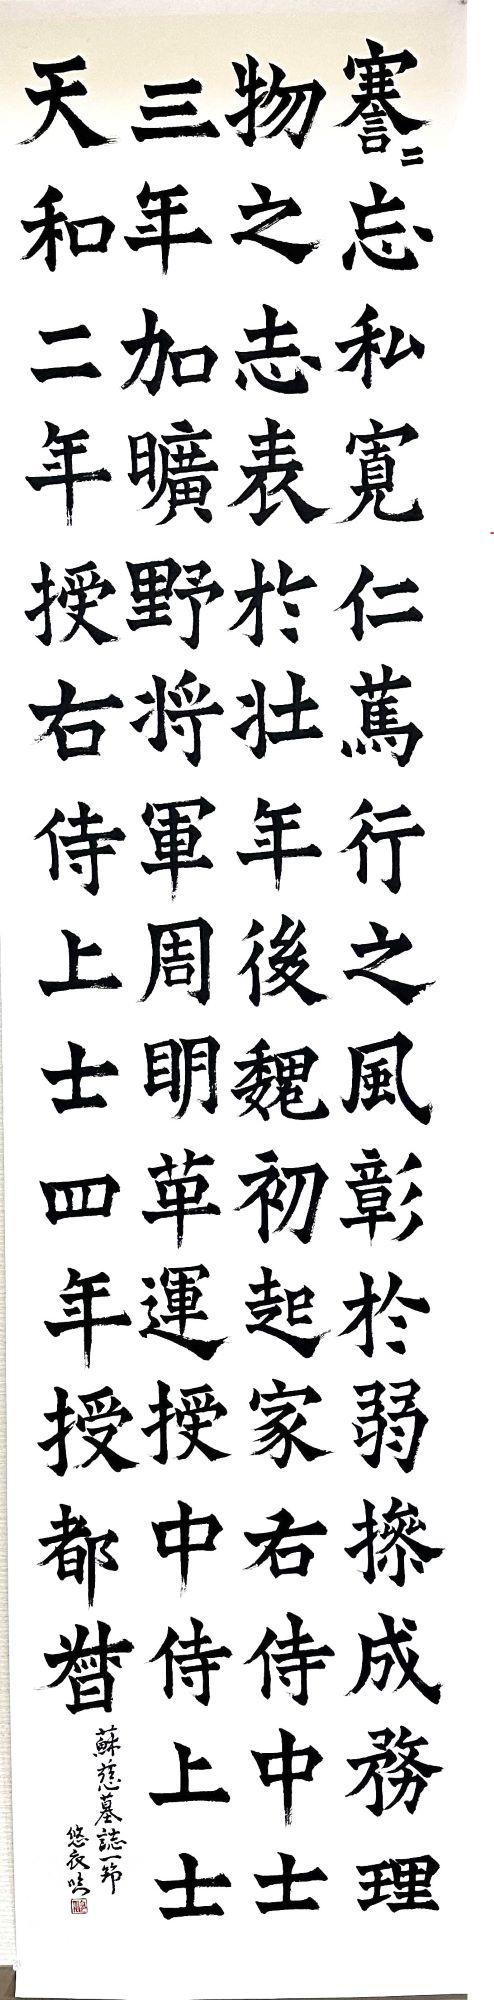 謇〻忘私寛仁篤行之風彰於弱操成務理
物之志表於壮年後魏初起家右侍中士
三年加曠野将軍周明革運授中侍上士
天和二年授右侍上士四年授都督
蘇慈墓誌一節
悠衣